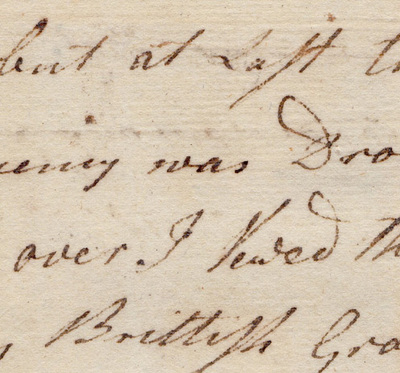 but at Last th
enemy was Dro
over I Vewed th
Brittish Gra